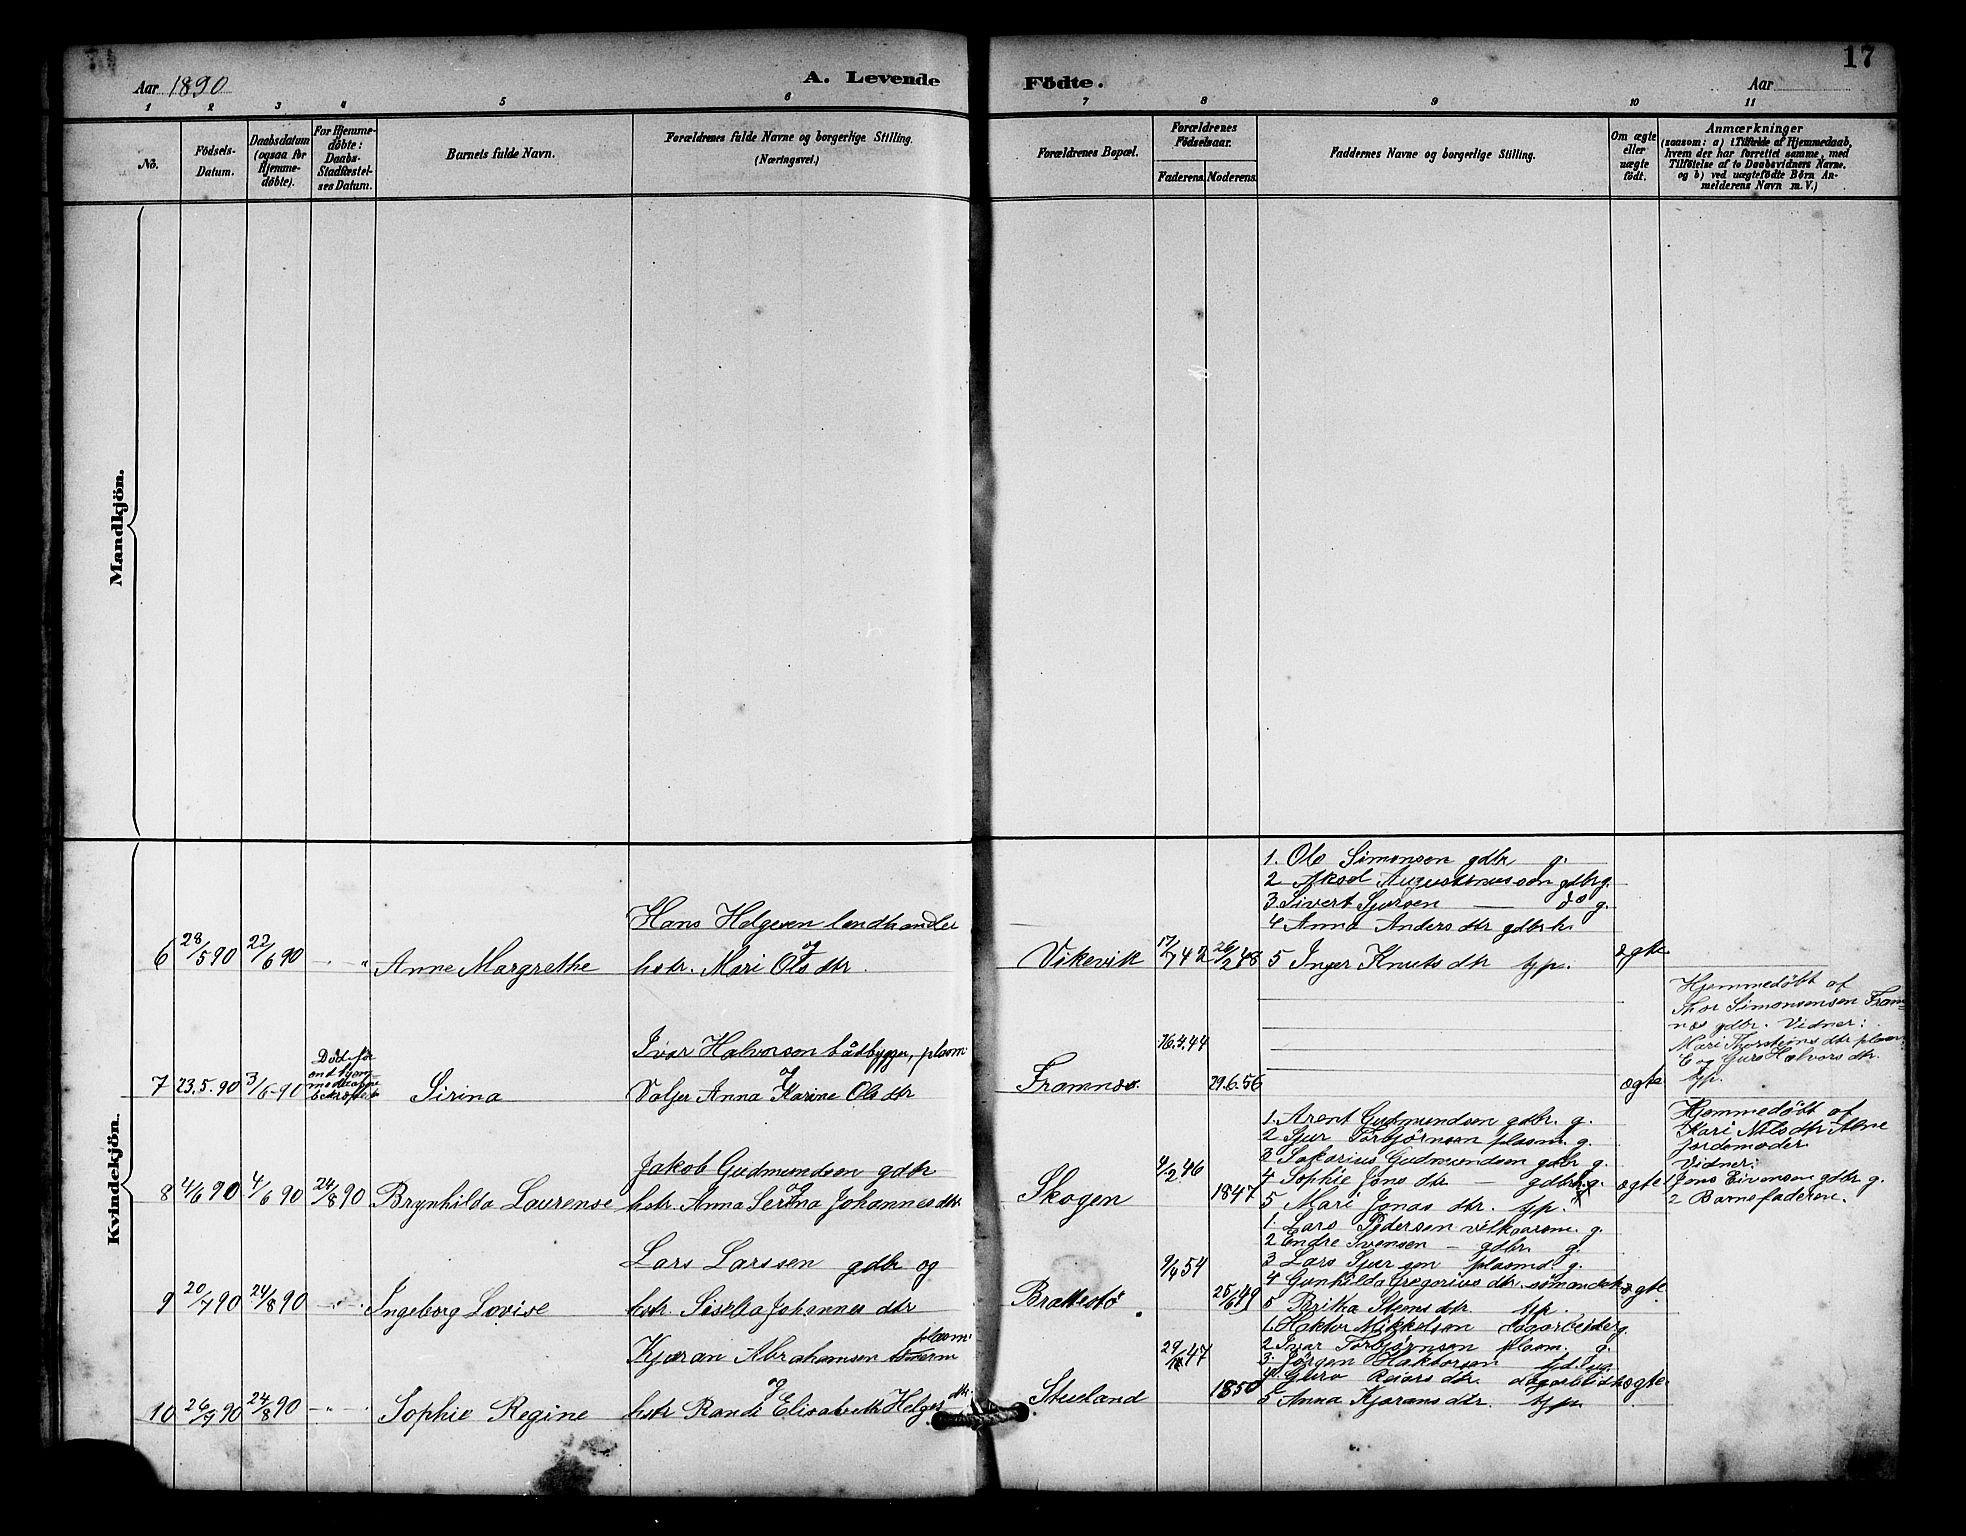 17
Aar 1890
A. Levende
Födte.
Aar
1 2 3 4 5 6 7 8 9 10 11
No.
Födsels-
Datum.
Daabsdatum
(ogsaa for
Hjemme-
döbte).
For Hjemme-
döbte:
Daabs-
Stadfæstel-
ses Datum.
Barnets fulde Navn.
Forældrenes fulde Navne og borgerlige Stilling.
(Næringsvei.)
Forældrenes Bopæl.
Forældrenes
Födselsaar.
Faderens. Moderens.
Faddernes Navne og borgerlige Stilling.
Om ægte
eller
uægte
födt.
Anmærkninger
(saasom: a) i Tilfælde af Hjemmedaab,
hvem der har forrettet samme, med
Tilföielse af to Daabsvidners Navne.
og b) ved uægtefödte Börn An-
melderens Navn m. V.)
Mandkjön.
Kvindekjön.
6 28/5 90 22/6 90 Anne Margrethe
Hans Helgesen landhandler
og
hstr. Mari Ols dtr.
Vikevik 26/2 48
1. Ole Simonsen gdbr g.
2 Aksel Augustinussen gdbr g.
3. Sivert Sjursen — do g.
4 Anna Anders dtr gdbrk.
5 Inger Knuts dtr tjp.
ægte
7 23.5.90 3/6-90
Död før
Sirina
Ivar Halvorsen båtbygger, plasm
og
Valjer Anna Karine Ols dtr
Framnæs 29.6.56
ægte
Hjemmedöbt af
Thor Simonsensen Fram-
næs gdbr. Vidner:
Mari Thorsteins dtr plasm
og Guro Halvors dtr.
tjp.
8 4/6 90 4/6 90 24/8 90 Brynhilda Laurense
Jakob Gudmundsen gdbr
og
hstr. Anna Serina Johannes dtr
Skogen 4/2 46 1847
1. Arent Gudmundsen gdbr. g.
2 Sjur Torbjörnsen plasm. g.
3 Sakarius Gudmundsen gdbr g.
4 Sophie Jons dtr — gdbrk g.
5 Mari Jonas dtr. tjp.
ægte
Hjemmedöbt af
Kari Nils dtr Alne
Jordemoder
Vidner:
1 Jens Eivensen gdbr g.
2 Barnefaderen.
9 20/7 90 24/8 90 Ingeborg Lovise
Lars Larssen gdbr og
hstr. Siselia Johannes dtr
Brattestö 9/4 54 25/6 49
1. Lars Pedersen vilkaarsm. g.
2 Endre Svensen — gdbr. g.
3 Lars Sjursen plasmd. g.
4 Gunhilda Gregorius dtr. sömandsk
5 Britha Steens dtr tjp.
ægte
10 26/7 90 24/8 90 Sophie Regine
Kjaran Abrahamsen plasm.
og
hstr Randi Elisabeth Helges dtr.
Stueland 1850
1. Haktor Mikkelsen dagarbeider g.
2. Ivar Torbjörnsen plasm. g.
3. Jörgen Haktorsen ug.
4. Guro Reiars dtr. dagarbeidk
5 Anna Kjarans dtr. tjp.
ægte